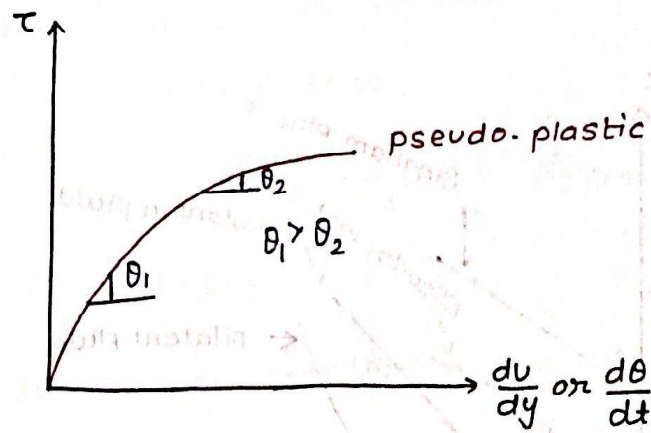 τ
pseudo-plastic
θ₂
θ₁ > θ₂
θ₁
du/dy or dθ/dt